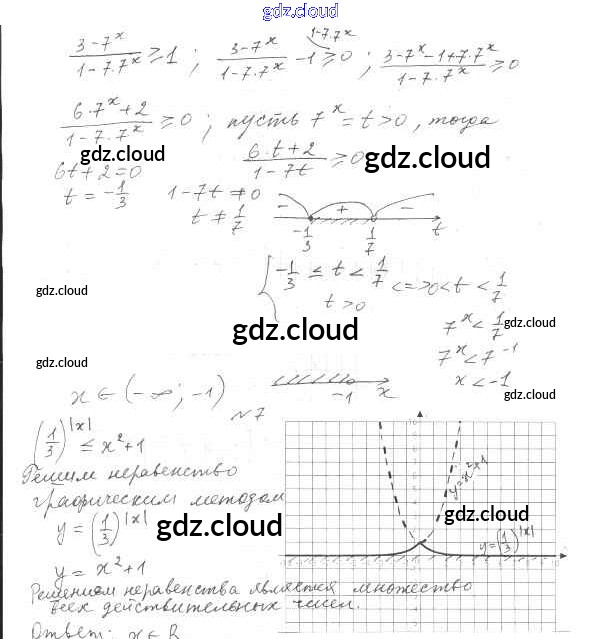 gdz.cloud
(3-7^x)/(1-7·7^x) ≥ 1 ; (3-7^x)/(1-7·7^x) - 1 ≥ 0 ; (3-7^x-1+7·7^x)/(1-7·7^x) ≥ 0
1-7·7^x
(6·7^x+2)/(1-7·7^x) ≥ 0 ; пусть 7^x = t > 0 , тогда
gdz.cloud (6·t+2)/(1-7t) ≥ 0 gdz.cloud
6t+2=0
t = -1/3 1-7t ≠ 0
t ≠ 1/7
- + -
-1/3 1/7 t
gdz.cloud
{ -1/3 ≤ t < 1/7 <=> 0 < t < 1/7
t > 0
gdz.cloud
7^x < 1/7 gdz.cloud
gdz.cloud
7^x < 7^-1
x < -1
x ∈ (-∞; -1) -1 x
gdz.cloud
№7
(1/3)^|x| ≤ x²+1
Решим неравенство
графическим методом
y = (1/3)^|x|
gdz.cloud
y = x²+1
y=x²+1
gdz.cloud
y=(1/3)^|x|
Решением неравенства является множество
всех действительных чисел.
Ответ: x ∈ R